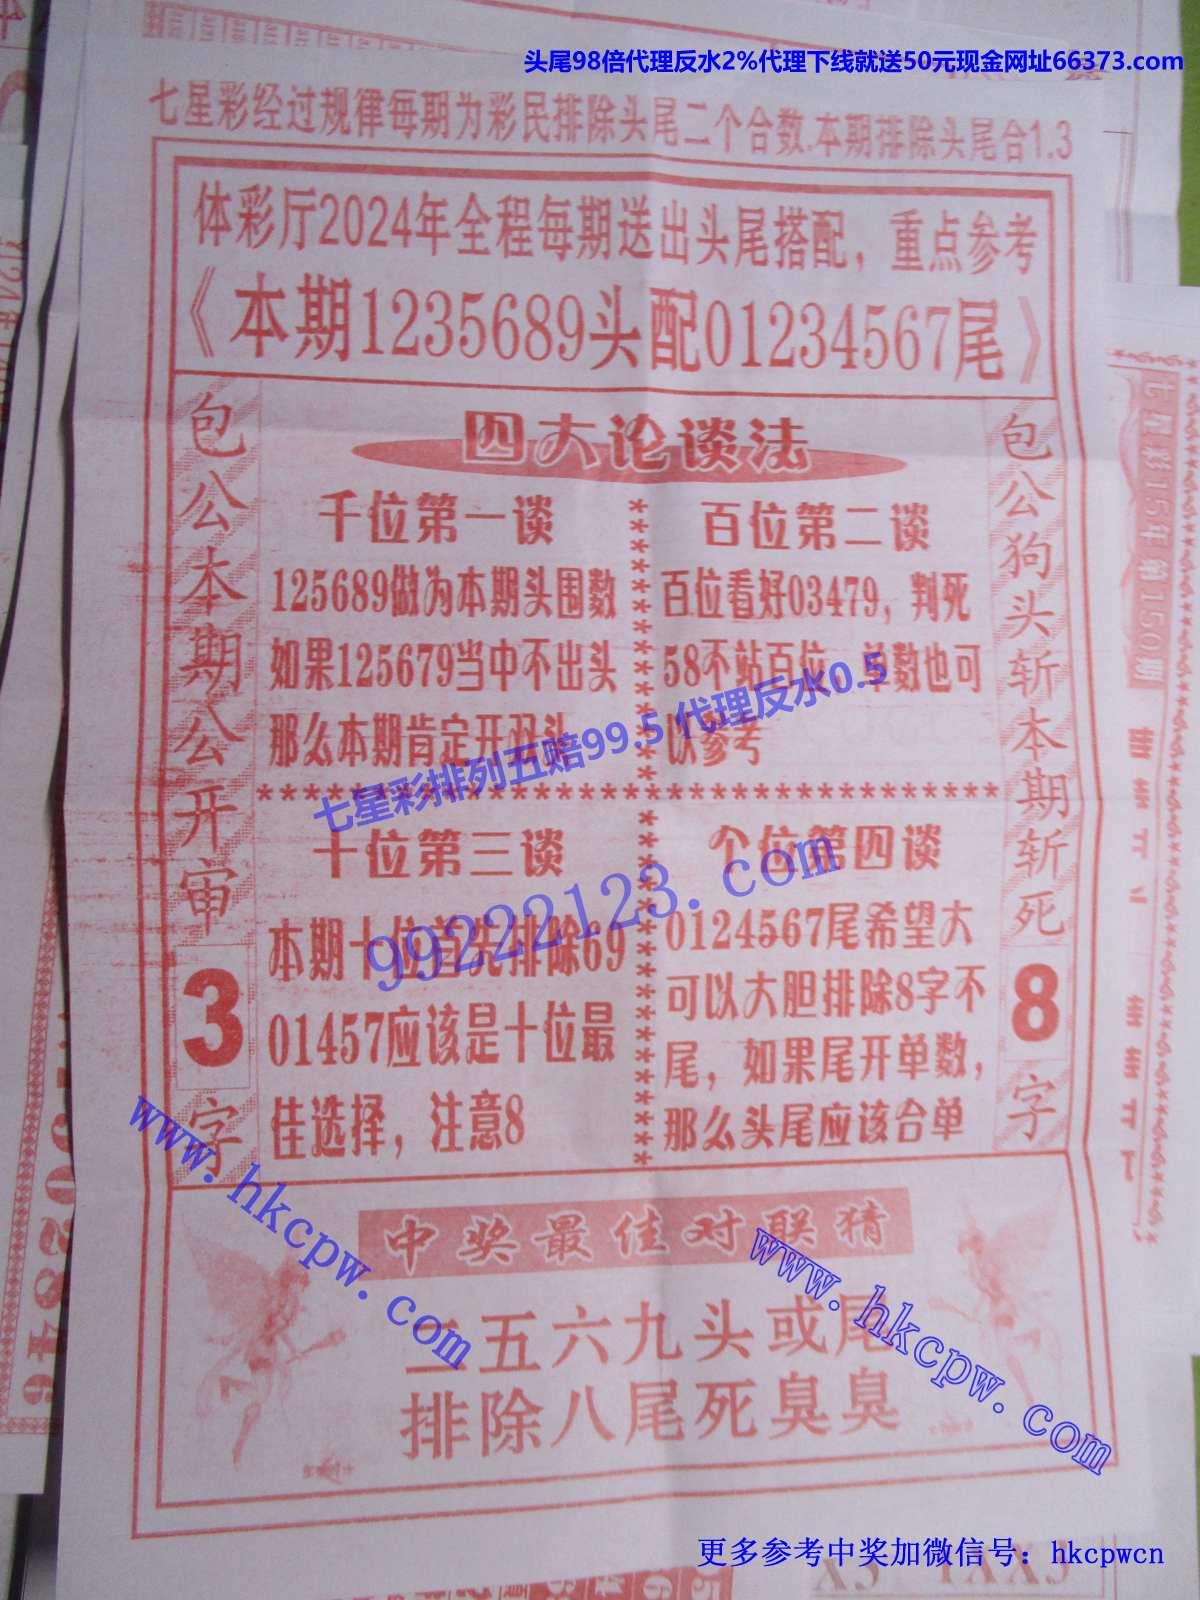 头尾98倍代理反水2%代理下线就送50元现金网址66373.com
七星彩经过规律每期为彩民排除头尾二个合数.本期排除头尾合1.3
体彩厅2024年全程每期送出头尾搭配，重点参考
《本期1235689头配01234567尾》
包公本期公开审3字
四大论谈法
千位第一谈
125689做为本期头围数
如果125679当中不出头
那么本期肯定开双头
百位第二谈
百位看好03479，判死
58不站百位，单数也可
以参考
七星彩排列五赔99.5 代理反水0.5
99222123.com
十位第三谈
本期十位首先排除69
01457应该是十位最
佳选择，注意8
个位第四谈
0124567尾希望大
可以大胆排除8字不
尾，如果尾开单数，
那么头尾应该合单
包公狗头斩本期斩死8字
www.hkcpw.com
www.hkcpw.com
中奖最佳对联猜
二五六九头或尾
排除八尾死臭臭
七星彩15年第150期
更多参考中奖加微信号：hkcpwcn